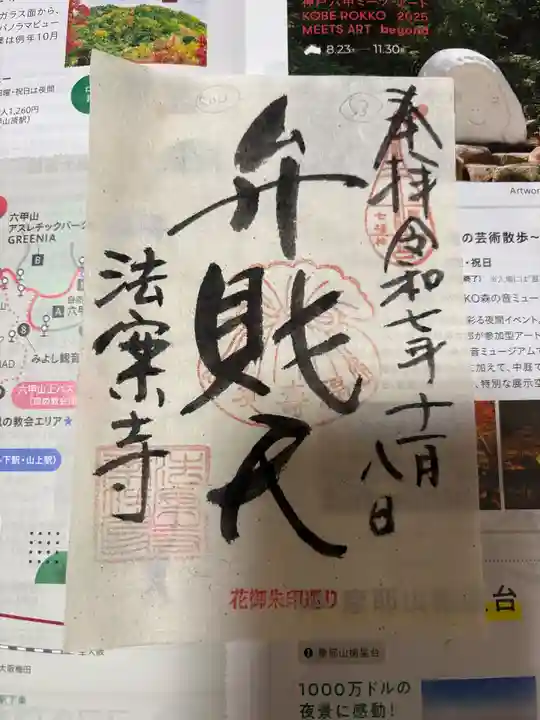 ガラス面から、
パノラマビュー
は例年10月
曜・祝日は夜間
人1,260円
神戸六甲ミーツ・アート
KOBE ROKKO 2025
MEETS ART beyond
8.23 11.30
奉拝 令和七年十一月
八日
弁財天
法案寺
花御朱印巡り
六甲山
アスレチックパーク
GREENIA
B
A
8
みよし観音
六甲山上バス
の教会エリア★
下駅・山上駅)
大阪梅田
Artwor
の芸術散歩～
・祝日
KO森の音ミュー
彩る夜間イベント。
が参加型アート
音ミュージアムで
に加えて、中庭で
、特別な展示空
台
1000万ドルの
夜景に感動!